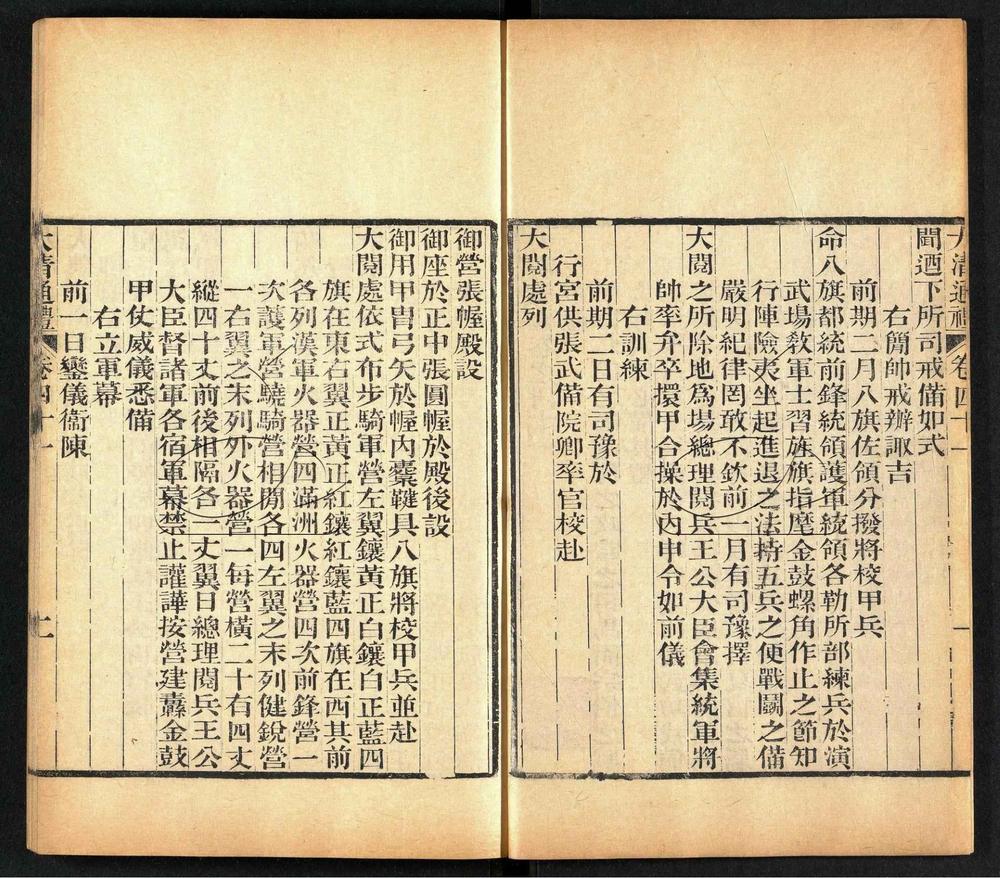 大清通禮 卷四十一 一
聞迺下所司戒備如式
右簡帥戒辦諏吉
前期二月八旗佐領分撥將校甲兵
命八旗都統前鋒統領護軍統領各勒所部練兵於演
武場敎軍士習旌旗指麾金鼓螺角作止之節知
行陣險夷坐起進退之法精五兵之便戰鬬之備
嚴明紀律罔敢不欽前一月有司豫擇
大閱之所除地爲場總理閱兵王公大臣會集統軍將
帥率弁卒擐甲合操於內申令如前儀
右訓練
前期二日有司豫於
行宮供張武備院卿率官校赴
大閱處列
御營張幄殿設
御座於正中張圓幄於殿後設
御用甲冑弓矢於幄內櫜鞬具八旗將校甲兵並赴
大閱處依式布步騎軍營左翼鑲黃正白鑲白正藍四
旗在東右翼正黃正紅鑲紅鑲藍四旗在西其前
各列漢軍火器營四滿洲火器營四次前鋒營一
次護軍營驍騎營相閒各四左翼之末列健銳營
一右翼之末列外火器營一每營橫二十有四丈
縱四十丈前後相隔各二丈翼日總理閱兵王公
大臣督諸軍各宿軍幕禁止讙譁按營建纛金鼓
甲仗威儀悉備
右立軍幕
前一日鑾儀衞陳
大清通禮 卷四十一 二